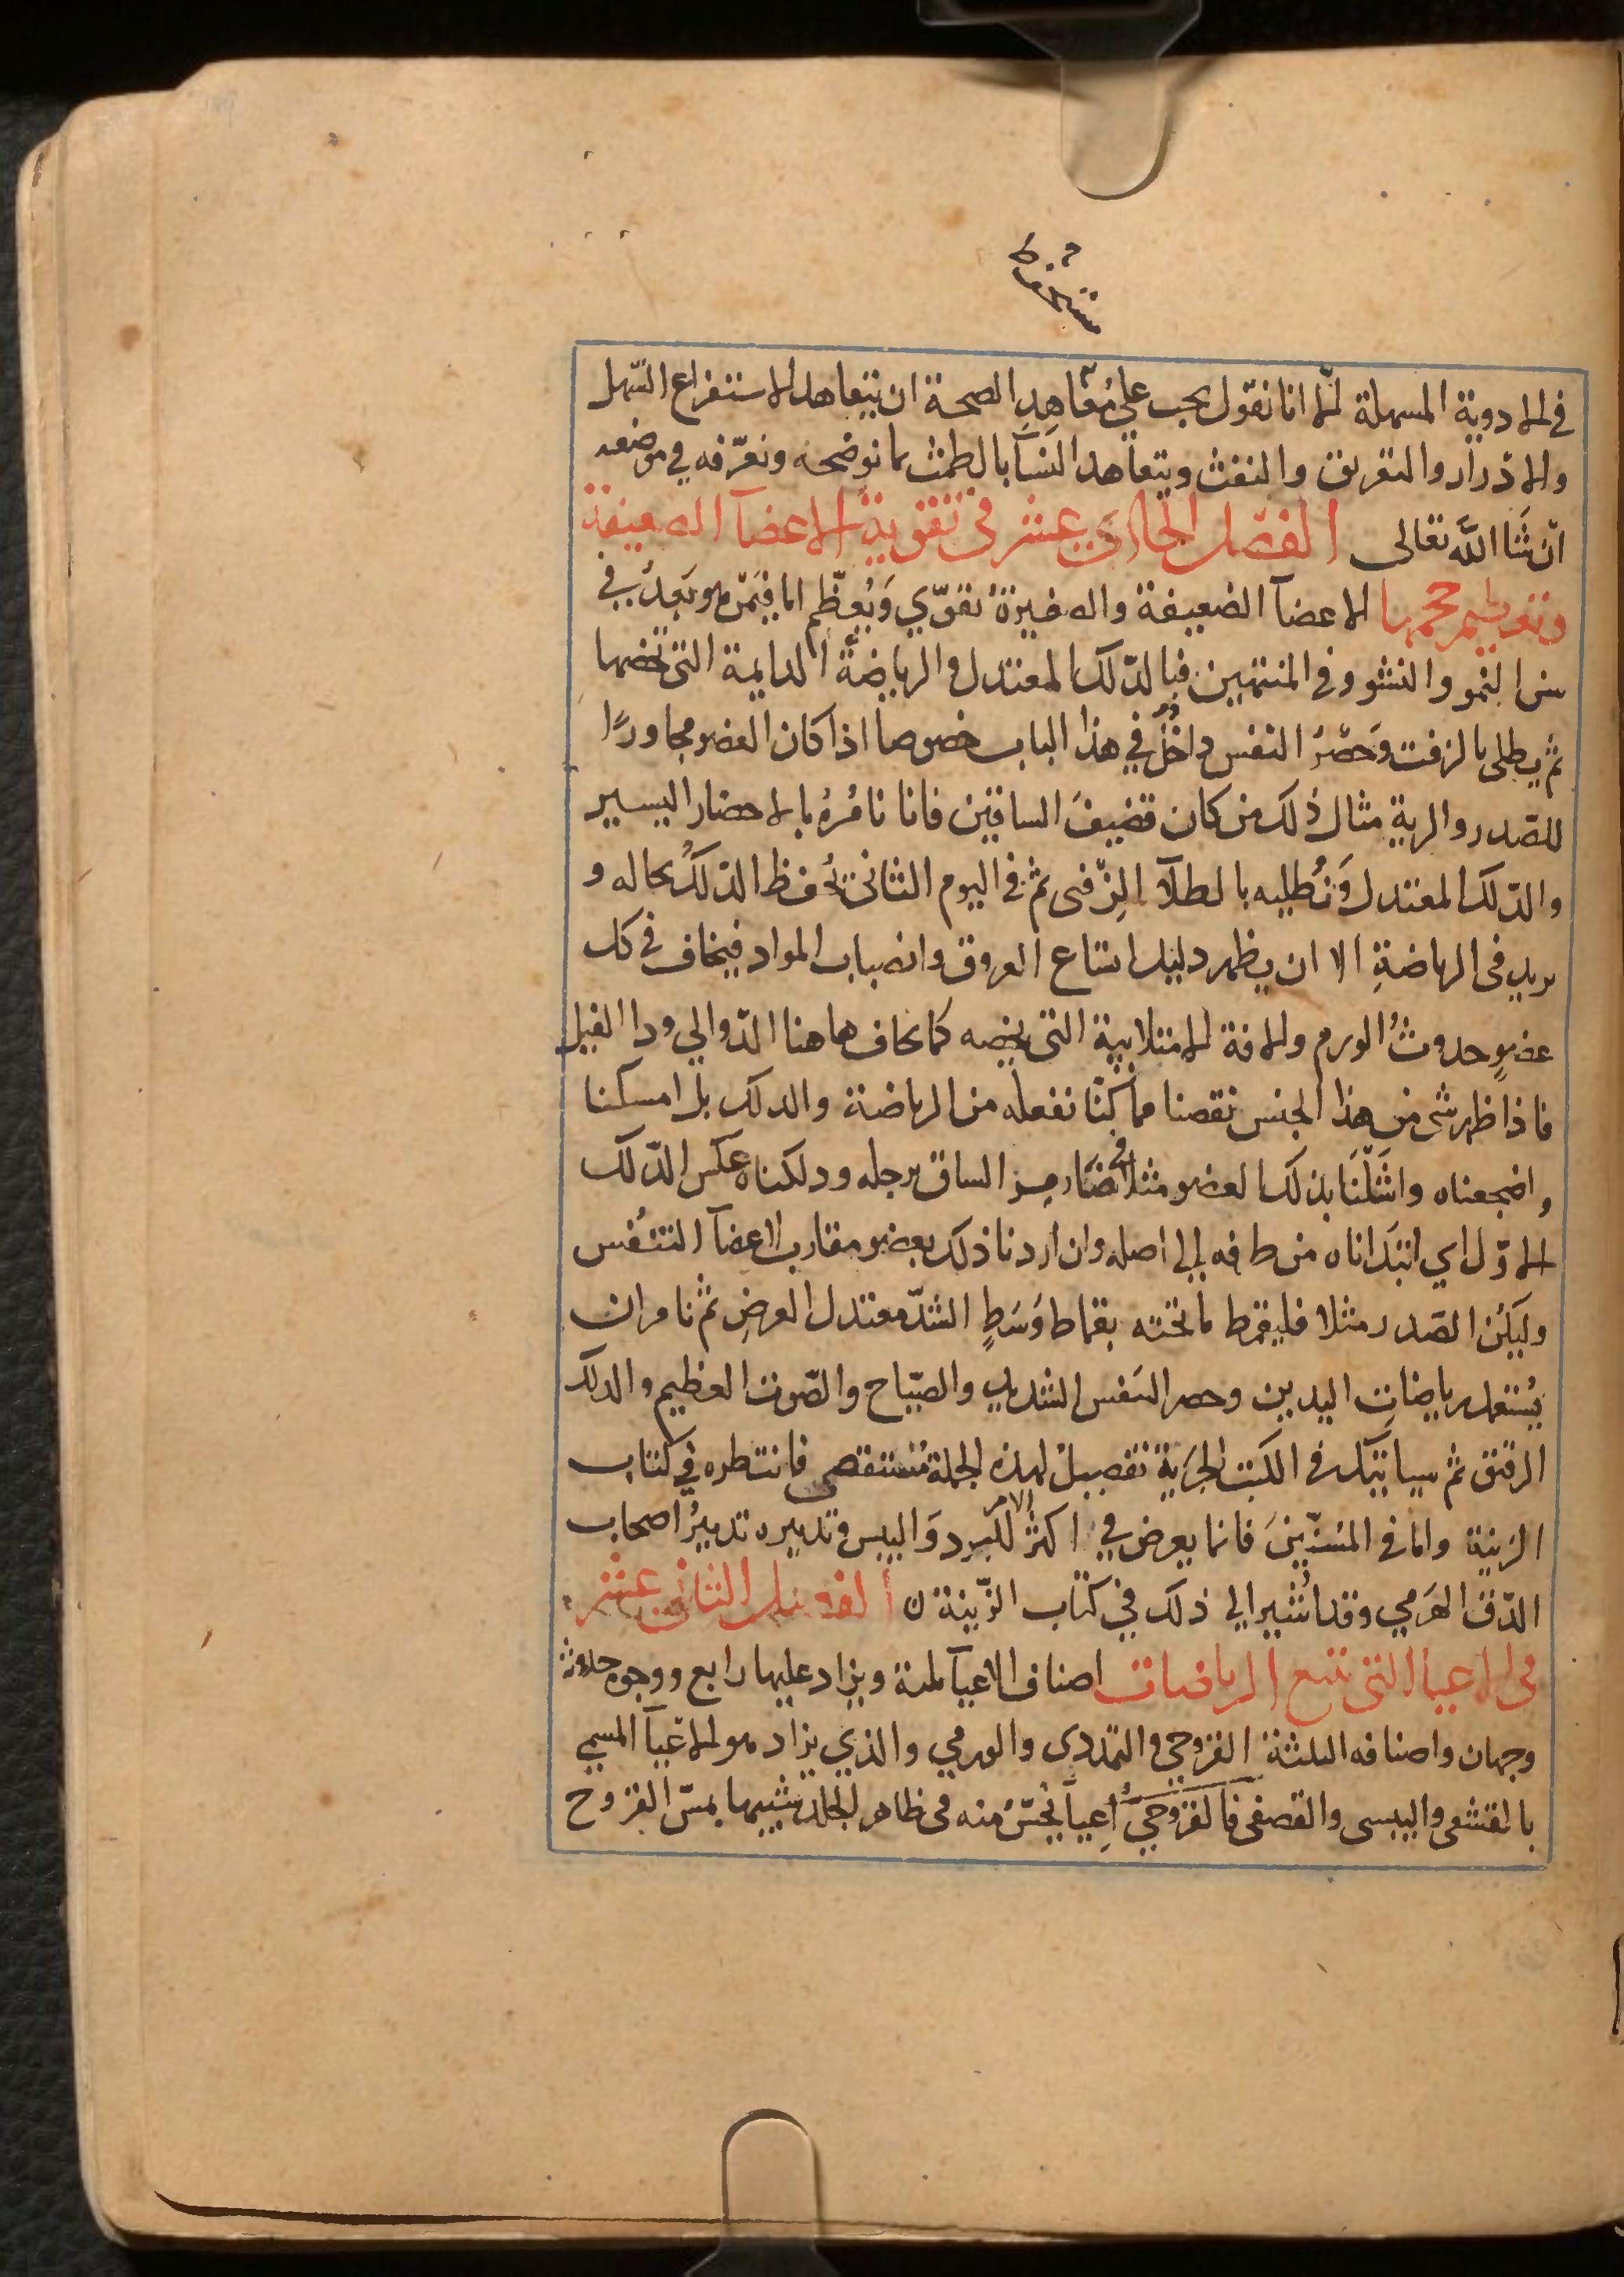 في الادوية المسهلة الا انا نقول يجب على متعاهد الصحة ان يتعاهد الاستفراغ السّهل
والادرار والتعريق والنفث ويتعاهد النسآ بالطمث بما نوضحه ونعرّفه في موضعه
ان شَا اللّه تعالى الفصل الحادى عشر فى تقوية الاعضآ الضعيفة
وتعظيم حجمها الاعضآ الضعيفة والصغيرة تقوّي وَيُعظّم اما فيمَن هو بَعدُ في
سن النمو والنشو وفي المنتهين فبالدّلك المعتدل والرياضة الدايمة التى تخصها
ثم يطلى بالزفت وَحصرُ النفس داخلٌ في هذا الباب خصوصا اذا كان العضو مجاورًا
للصّدر والرية مثال ذلك من كان قضيفَ الساقين فانا نامُرهُ بالاحضار اليسير
والدّلك المعتدل وَنُطليه بالطلآ الزِّفتى ثم فى اليوم الثانى يُحفظ الدّلكُ بحاله و
يزيد فى الرياضةِ الا ان يظهر دليل اتساع العروق وانصباب المواد فيخاف في كل
عضوٍ حدوثُ الورم والافة الامتلايية التى تخصه كما يخاف هاهنا الدّوالي ودا الفيل
فاذا ظهر شى من هذا الجنس نقصنا مما كنّا نفعله من الرياضة والدلك بل امسكنا
واضجعناه واشَلْنَا بذلك العضو مثلا في ضَامِر الساق برجله ودلكناه عكس الدّلك
الاوّل اي ابتَداناه من طرفه إلى اصله وان اردنا ذلك بعضو مقارب لاعضآ التنفُس
وليَكُن الصّدر مثلا فليقمط ما تحته بقماط وَسَطِ الشدّ معتدل العرضِ ثم نامر ان
يُستعمل رياضات اليدين وحصر النَفس الشديد والصّياح والصّوت العظيم والدلك
الرقيق ثم سياتيك في الكتب الجزية تفصيلٌ لهذه الجملة مُستقصى فانتظره في كتاب
الزينة واما في المُسنّينَ فانما يعرض في اكثر الامر للبرد وَاليبس وتدبيره تدبيرُ اصحاب
الدّق الهَرمي وقد اُشير الى ذلك في كتاب الزّينة ن الفصل الثانى عشر
فى الاعيا التى تتبع الرياضات اصناف الاعيآ ثلثة ويزاد عليها رابع ووجوه حدوثه
وجهان واصنافه الثلثة القروحي والتمددى والورمي والذي يزاد هو الاعيآ المسمى
بالقشفى واليبسى والقصفى فالقروحيّ اِعيآ يُحسّ منه فى ظاهر الجلد شبيها بمسّ القروح